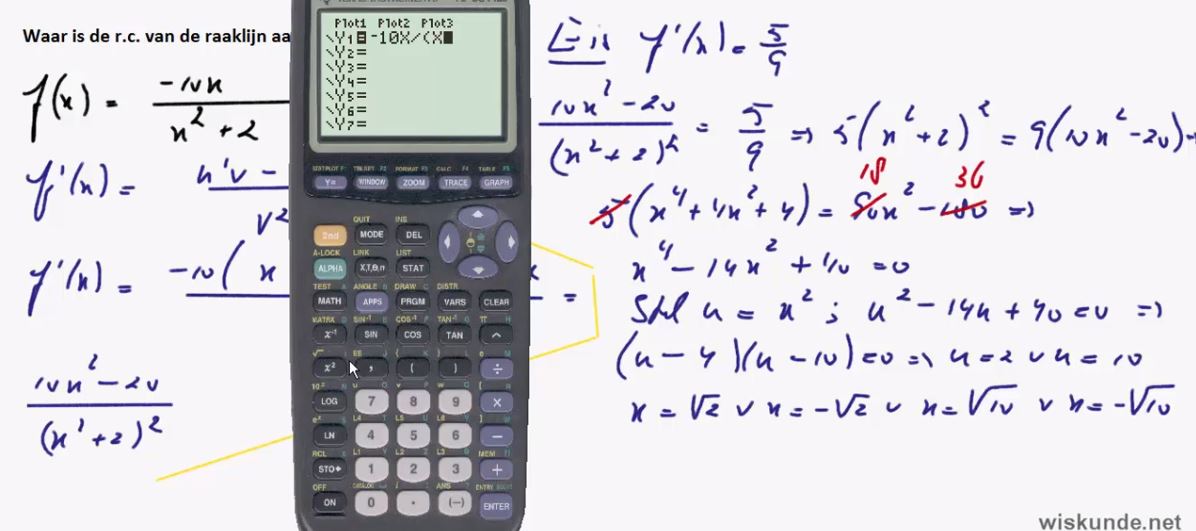 Waar is de r.c. van de raaklijn aa
f(x) = -10x / x² + 2
f'(x) = n'v - / v²
f'(x) = -10( x x =
10x² - 20 / (x² + 2)²
Plot1 Plot2 Plot3
\Y1=-10X/(X
\Y2=
\Y3=
\Y4=
\Y5=
\Y6=
\Y7=
STATPLOT F1 TBLSET F2 FORMAT F3 CALC F4 TABLE F5
Y= WINDOW ZOOM TRACE GRAPH
QUIT INS
2nd MODE DEL
A-LOCK LINK LIST
ALPHA X,T,θ,n STAT
TEST A ANGLE B DRAW C DISTR
MATH APPS PRGM VARS CLEAR
MATRX D SIN⁻¹ E COS⁻¹ F TAN⁻¹ G π H
x⁻¹ SIN COS TAN ^
√ I EE J { K } L e M
x² , ( ) ÷
10ˣ N u O v P w Q [ R
LOG 7 8 9 ×
eˣ S L4 T L5 U L6 V ] W
LN 4 5 6 −
RCL X L1 Y L2 Z L3 θ MEM "
STO▸ 1 2 3 +
OFF CATALOG i ANS ? ENTRY SOLVE
ON 0 . (−) ENTER
Eis f'(x) = 5/9
10x² - 20 / (x² + 2)² = 5/9 => 5(x² + 2)² = 9(10x² - 20) =
18 36
5(x⁴ + 4x² + 4) = 90x² - 180 =>
x⁴ - 14x² + 40 = 0
Stel u = x² ; u² - 14u + 40 = 0 =>
(u - 4)(u - 10) = 0 => u = 2 v u = 10
x = √2 v x = -√2 v x = √10 v x = -√10
wiskunde.net